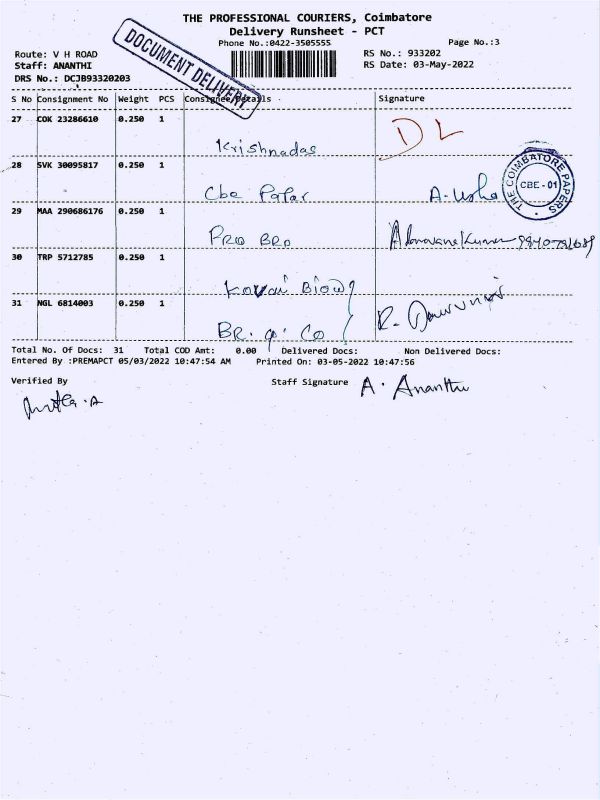 THE PROFESSIONAL COURIERS, Coimbatore
Delivery Runsheet - PCT
Phone No.:0422-3505555 Page No.:3
Route: V H ROAD RS No.: 933202
Staff: ANANTHI RS Date: 03-May-2022
DRS No.: DCJB93320203
DOCUMENT DELIVERY
S No Consignment No Weight PCS Consignee Details Signature
27 COK 23286610 0.250 1
Krishnadas DL
28 SVK 30095817 0.250 1
Cbe A. Usha
THE COIMBATORE PAPERS
CBE - 01
29 MAA 290686176 0.250 1
PRO BRO
30 TRP 5712785 0.250 1
Kovai
31 NGL 6814003 0.250 1
BR. Co R.
Total No. Of Docs: 31 Total COD Amt: 0.00 Delivered Docs: Non Delivered Docs:
Entered By :PREMAPCT 05/03/2022 10:47:54 AM Printed On: 03-05-2022 10:47:56
Verified By Staff Signature A. Ananthi